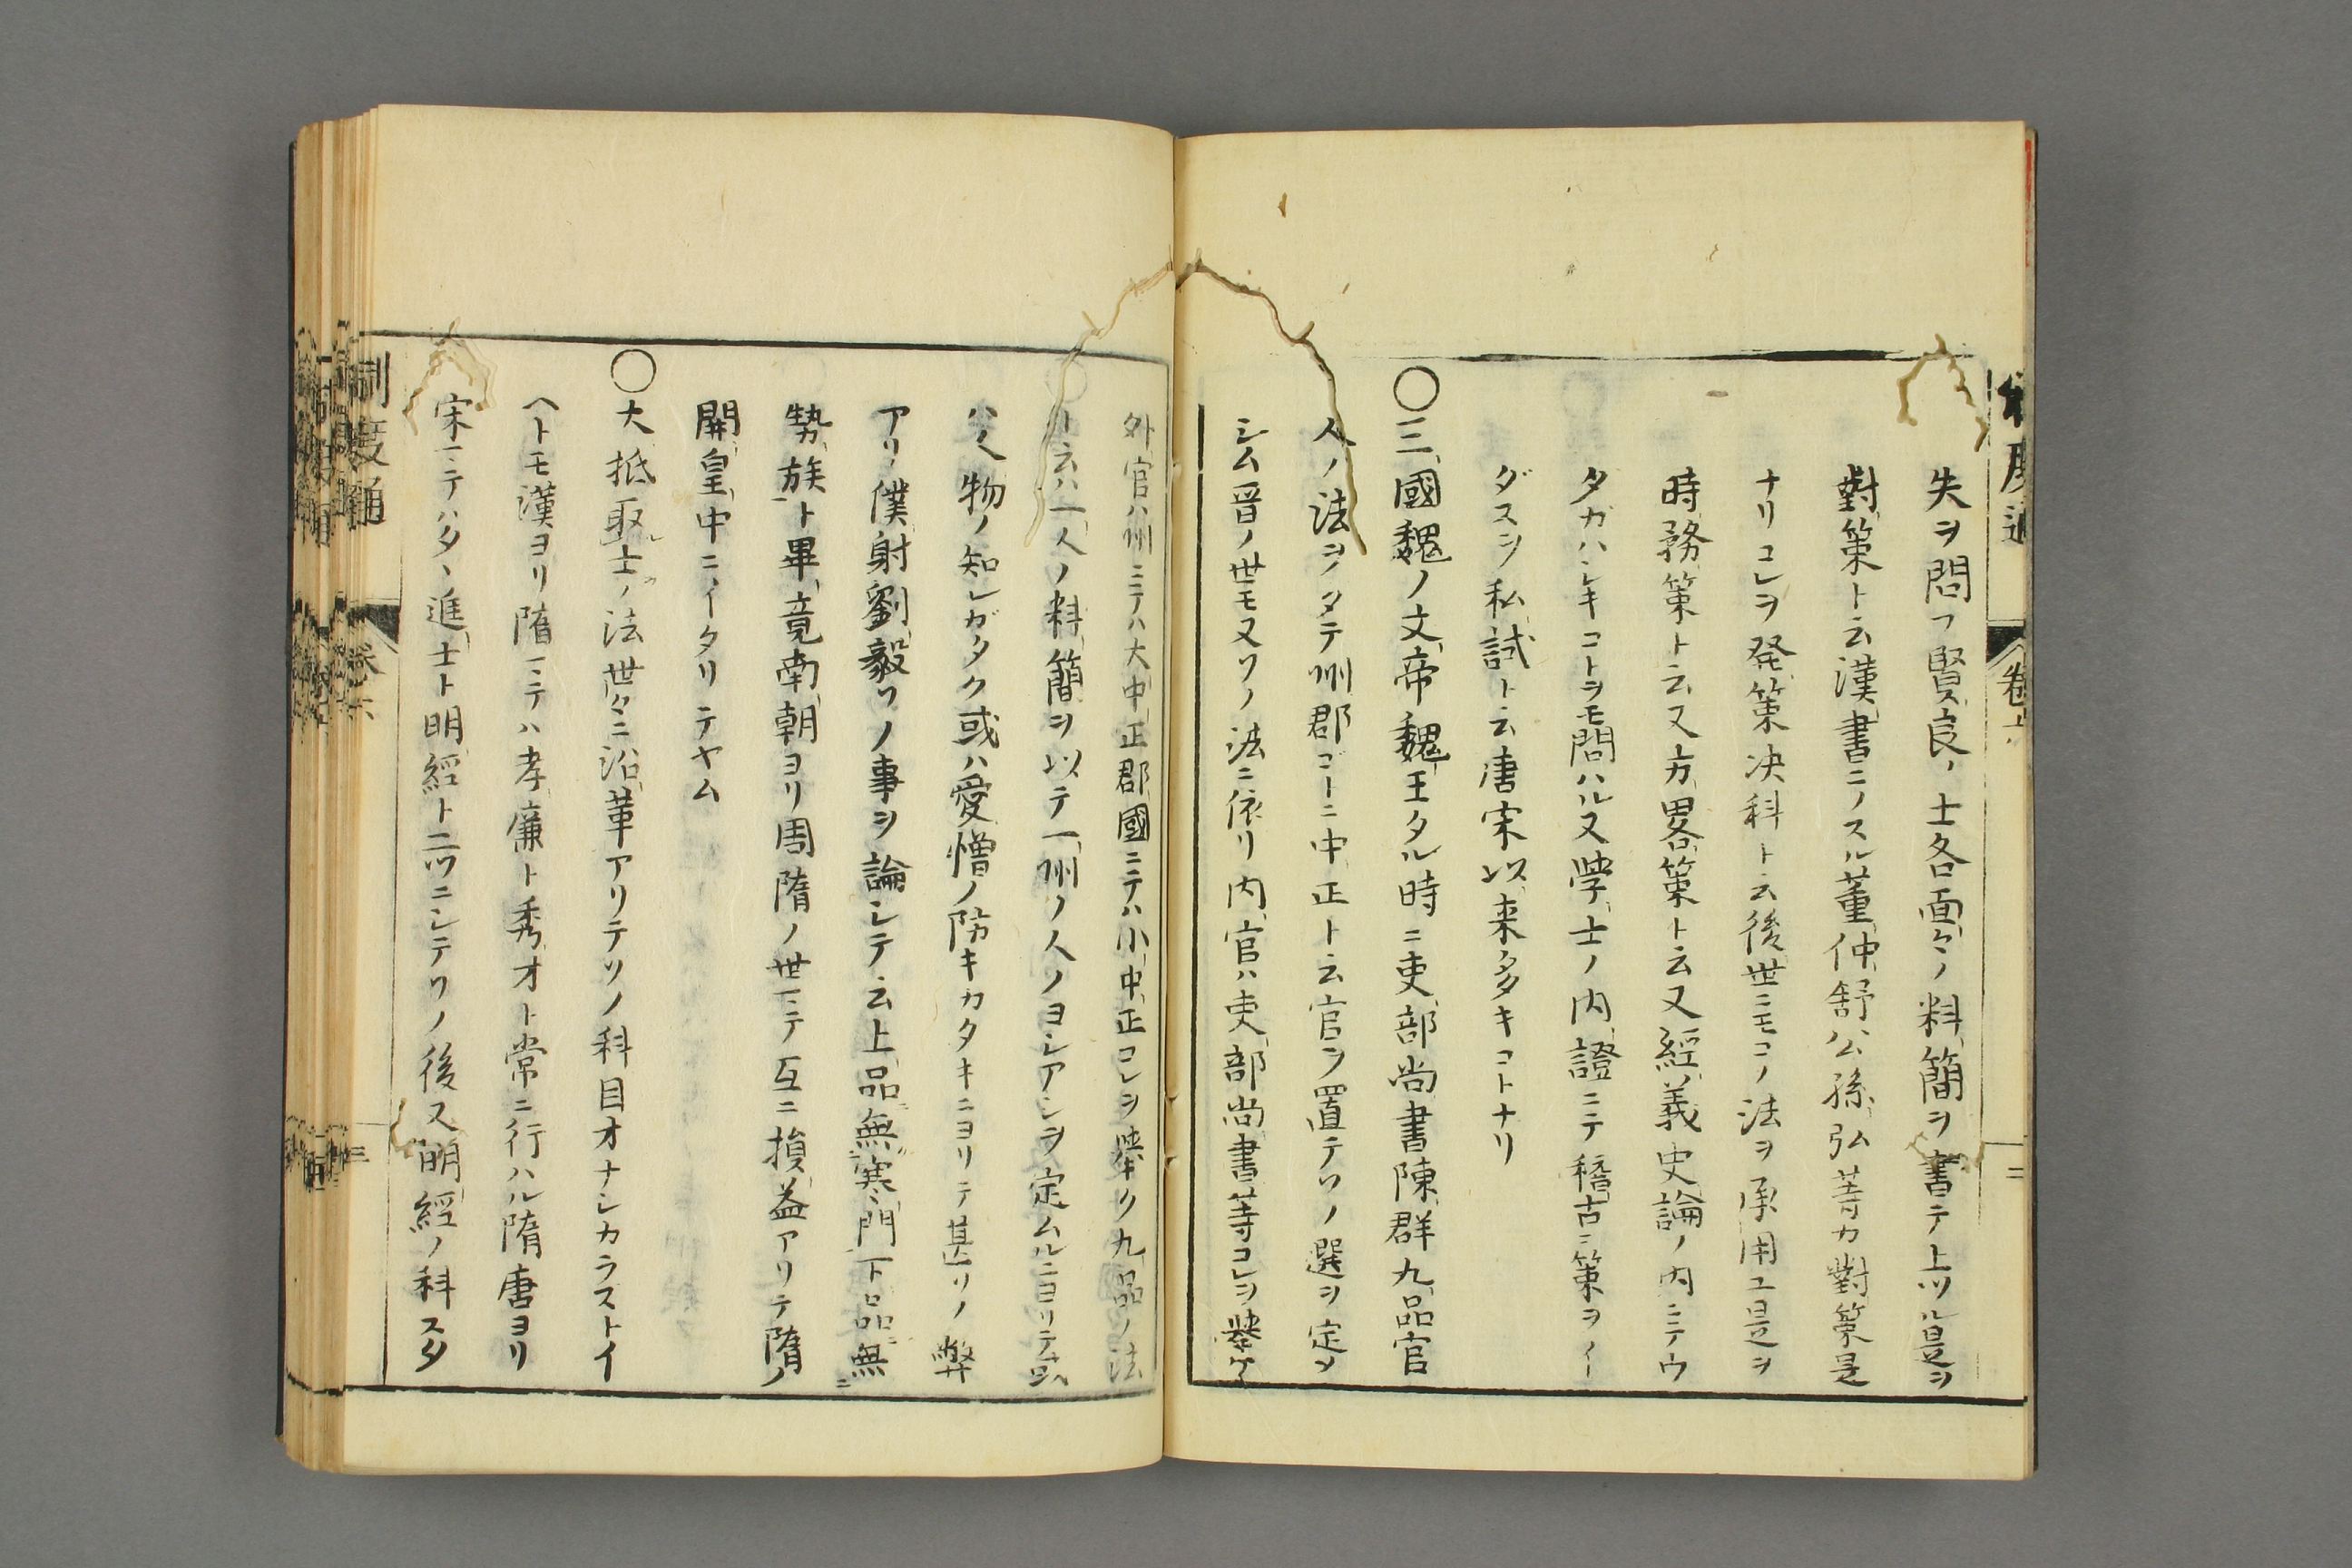 失ヲ問フ賢良ノ士各面々ノ料簡ヲ書テ上ツル是ヲ
對策ト云漢書ニノスル董仲舒公孫弘等カ對策是
ナリコレヲ発策决科ト云後世ニモコノ法ヲ承用ユ是ヲ
時務策ト云又方畧策ト云又經義史論ノ内ニテウ
タガハシキコトヲモ問ハル又學士ノ内證ニテ稽古ニ策ヲイ
ダスヲ私試ト云唐宋以来多キコトナリ
〇三國魏ノ文帝魏王タル時ニ吏部尚書陳群九品官
人ノ法ヲタテ州郡ゴトニ中正ト云官ヲ置テソノ選ヲ定メ
シム晋ノ世モ又ソノ法ニ依リ内官ハ吏部尚書等コレヲ舉ケ
外官ハ州ニテハ大中正郡國ニテハ小中正コレヲ舉ク九品ノ法
ト云ハ一人ノ料簡ヲ以テ一州ノ人ノヨシアシヲ定ムルニヨリテ或
ハ人物ノ知レガタク或ハ愛憎ノ防キカタキニヨリテ甚ソノ弊
アリ僕射劉毅ソノ事ヲ論シテ云上品無寒門下品無
勢族ト畢竟南朝ヨリ周隋ノ世ニテ互ニ損益アリテ隋ノ
開皇中ニイタリテヤム
〇大抵取士ノ法世々ニ沿革アリテソノ科目オナシカラストイ
ヘトモ漢ヨリ隋ニテハ孝廉ト秀才ト常ニ行ハル隋唐ヨリ
宋ニテハタヽ進士ト明經ト二ツニシテソノ後又明經ノ科スタ
制度通 卷六 三